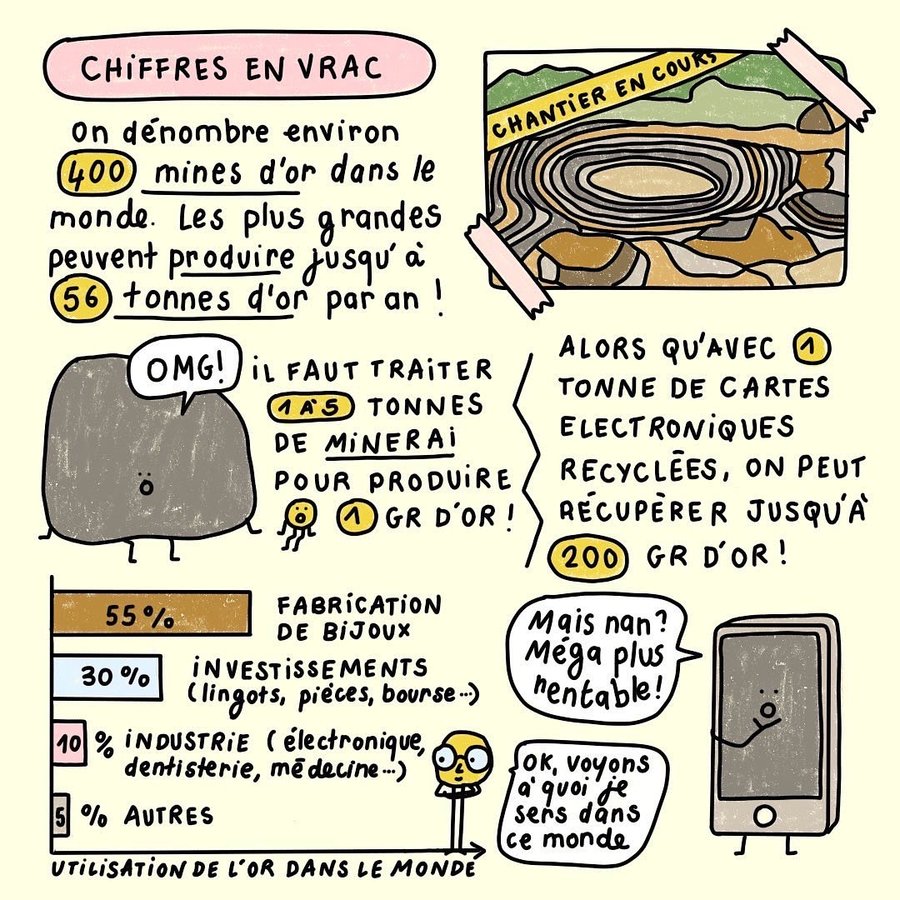 CHIFFRES EN VRAC
On dénombre environ
400 mines d'or dans le
monde. Les plus grandes
peuvent produire jusqu'à
56 tonnes d'or par an !
CHANTIER EN COURS
OMG!
IL FAUT TRAITER
1 À 5 TONNES
DE MINERAI
POUR PRODUIRE
1 GR D'OR !
ALORS QU'AVEC 1
TONNE DE CARTES
ELECTRONIQUES
RECYCLÉES, ON PEUT
RÉCUPÈRER JUSQU'À
200 GR D'OR !
55 %
FABRICATION
DE BIJOUX
30 %
INVESTISSEMENTS
(lingots, pièces, bourse...)
10 % INDUSTRIE (électronique,
dentisterie, médecine...)
5 % AUTRES
UTILISATION DE L'OR DANS LE MONDE
Mais nan?
Méga plus
rentable!
OK, voyons
à quoi je
sers dans
ce monde